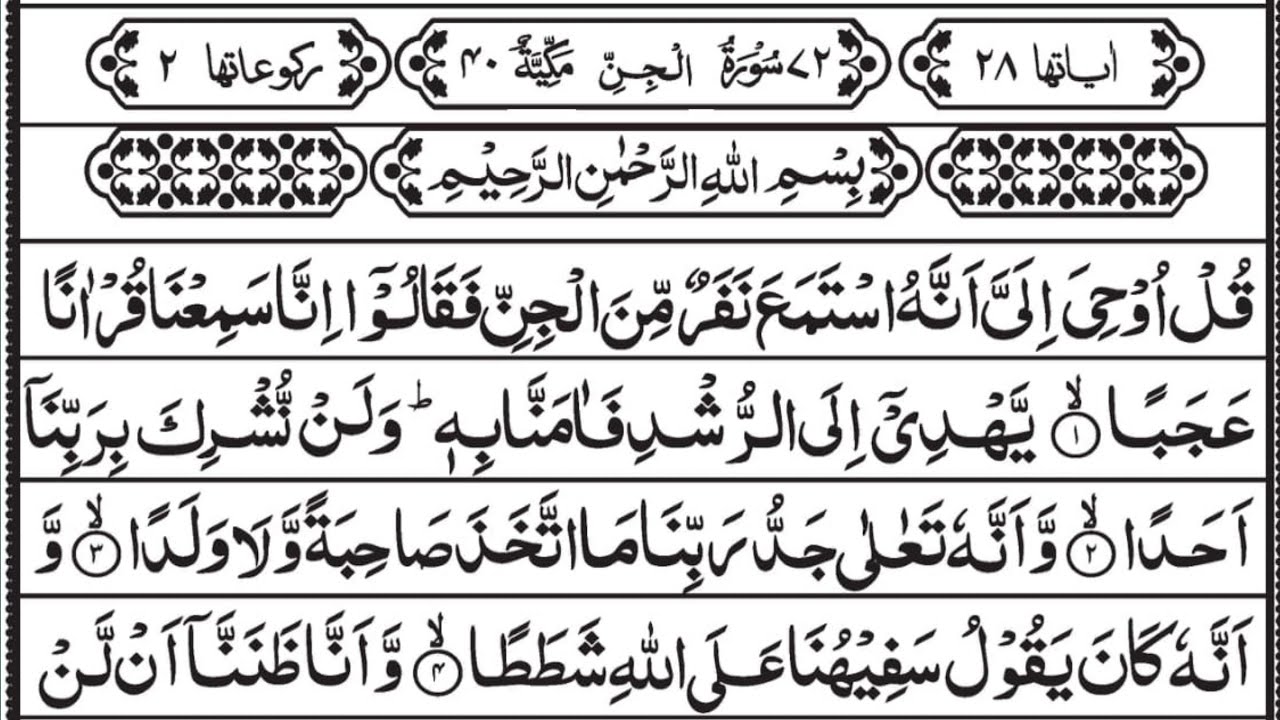 اٰیاتها ۲۸ ۷۲ سُوْرَةُ الْجِنِّ مَكِّیَّةٌ ۴۰ ركوعاتها ۲
بِسْمِ اللّٰهِ الرَّحْمٰنِ الرَّحِیْمِ
قُلْ اُوْحِیَ اِلَیَّ اَنَّهُ اسْتَمَعَ نَفَرٌ مِّنَ الْجِنِّ فَقَالُوْۤا اِنَّا سَمِعْنَا قُرْاٰنًا
عَجَبًا ۙ۱ یَّهْدِیْۤ اِلَی الرُّشْدِ فَاٰمَنَّا بِهٖ ؕ وَلَنْ نُّشْرِكَ بِرَبِّنَاۤ
اَحَدًا ۙ۲ وَّاَنَّهٗ تَعٰلٰی جَدُّ رَبِّنَا مَا اتَّخَذَ صَاحِبَةً وَّلَا وَلَدًا ۙ۳ وَّ
اَنَّهٗ كَانَ یَقُوْلُ سَفِیْهُنَا عَلَی اللّٰهِ شَطَطًا ۙ۴ وَّاَنَّا ظَنَنَّاۤ اَنْ لَّنْ